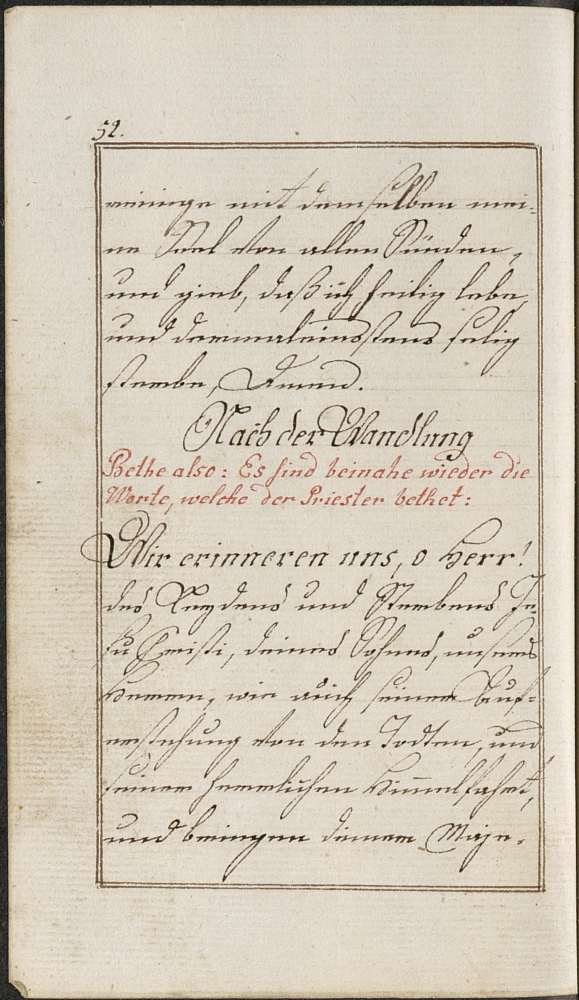 52.
reinige mit demselben mei-
ne Seel von allen Sünden,
und gieb, daß ich heilig lebe,
und dermaleinsstens selig
sterbe, Amen.
Nach der Wandlung
Bethe also: Es sind beinahe wieder die
Worte, welche der Priester bethet:
Wir erinneren uns, o Herr!
des Leydens und Sterbens Je-
su Christi, deines Sohnes, unsers
Herren, wie auch seiner Auf-
erstehung von den Todten, und
seiner herrlichen Himmelfahrt,
und bringen deiner Maje-